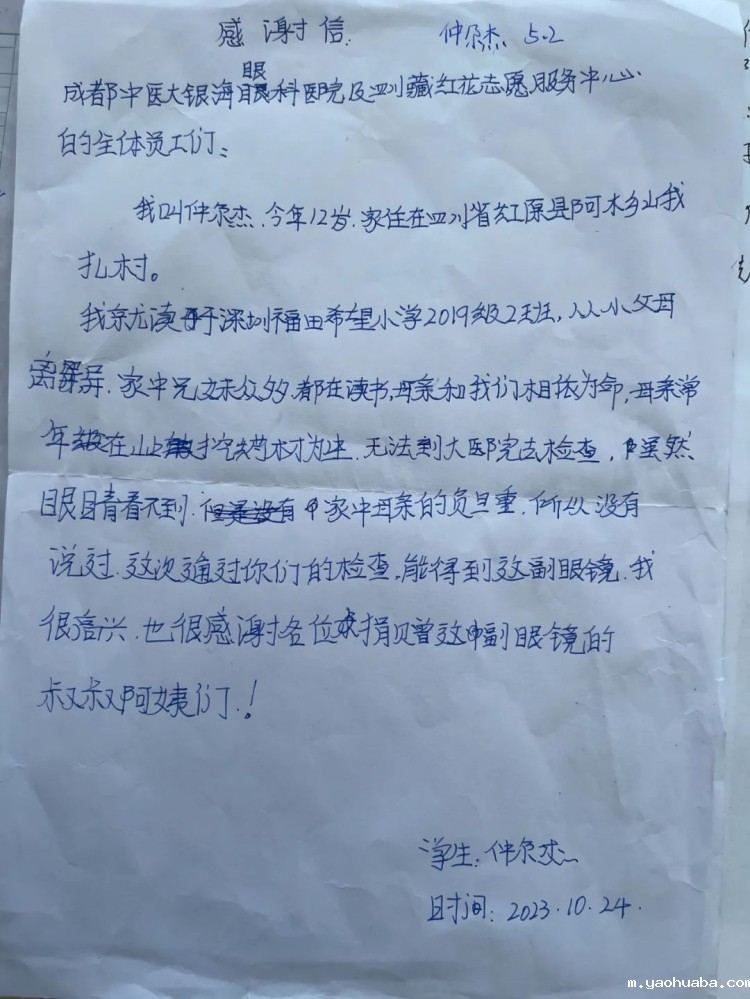 感谢信. 仲尕杰 5.2
眼
成都中医大银海眼科医院及四川藏红花志愿服务中心
的全体员工们:
我叫仲尕杰.今年12岁.家住在四川省红原县阿木乡山我
扎村。
我就读于深圳福田希望小学2019级2班,从小父母
离异.家中兄妹众多.都在读书,母亲和我们相依为命,母亲常
年在山上挖药材为生.无法到大医院去检查,虽然
眼睛看不到.家中母亲的负旦重.所以没有
说过.这次通过你们的检查,能得到这副眼镜.我
很高兴.也很感谢各位捐赠这副眼镜的
叔叔阿姨们.!
学生:仲尕杰
时间:2023.10.24.
m.yaohuaba.com